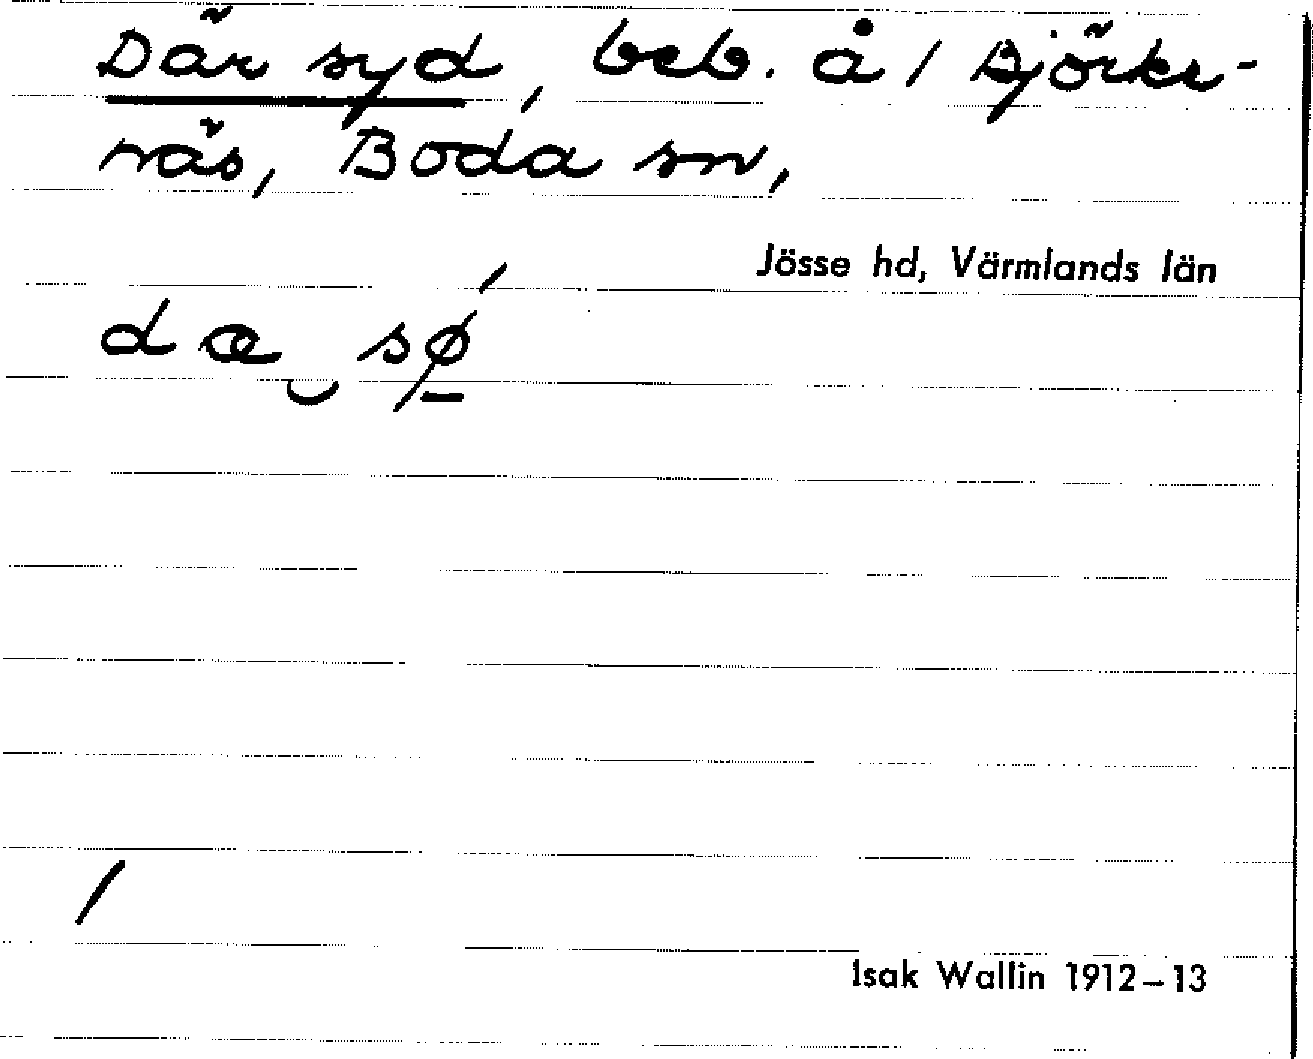 Där syd, beb. å / Björke-
näs, Boda sn,
Jösse hd, Värmlands län
dæ‿sø̱´
/
Isak Wallin 1912–13